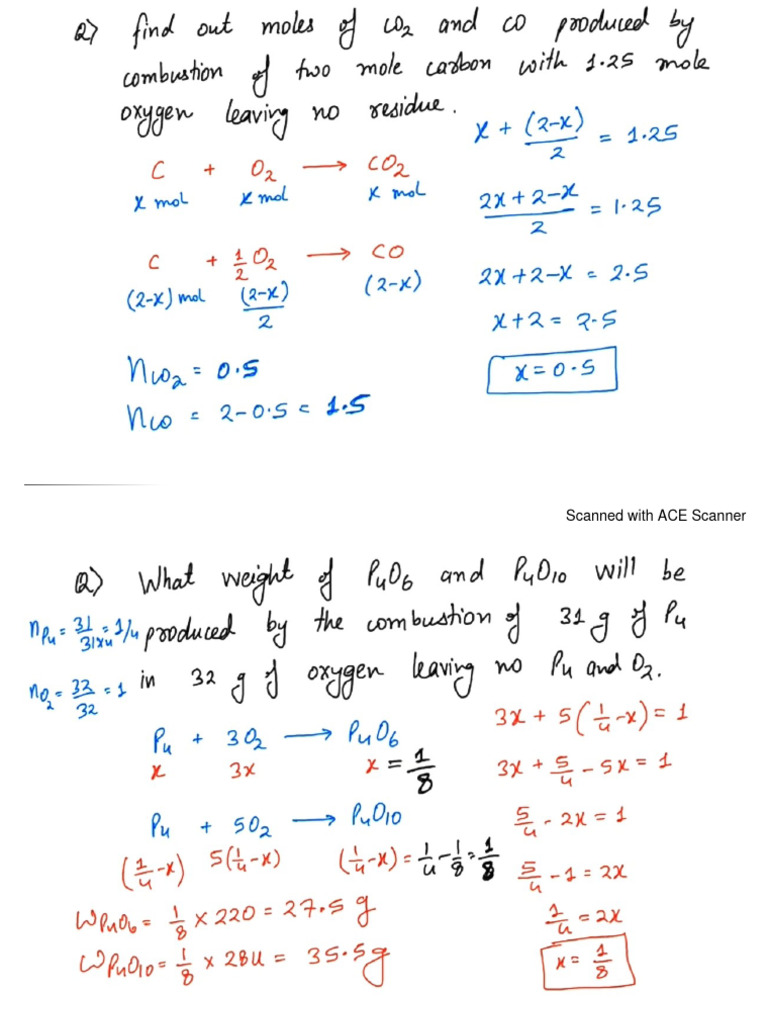 Q) find out moles of CO2 and CO produced by
combustion of two mole carbon with 1.25 mole
oxygen leaving no residue.
C + O2 → CO2
x mol x mol x mol
C + 1/2 O2 → CO
(2-x) mol (2-x)/2 (2-x)
nCO2 = 0.5
nCO = 2-0.5 = 1.5
x + (2-x)/2 = 1.25
2x+2-x/2 = 1.25
2x+2-x = 2.5
x+2 = 2.5
x = 0.5
Scanned with ACE Scanner
Q) What weight of P4O6 and P4O10 will be
produced by the combustion of 31 g of P4
in 32 g of oxygen leaving no P4 and O2.
nP4 = 31/31x4 = 1/4
nO2 = 32/32 = 1
P4 + 3O2 → P4O6
x 3x x = 1/8
P4 + 5O2 → P4O10
(1/4-x) 5(1/4-x) (1/4-x) = 1/4-1/8 = 1/8
WP4O6 = 1/8 x 220 = 27.5 g
WP4O10 = 1/8 x 284 = 35.5 g
3x + 5(1/4-x) = 1
3x + 5/4 - 5x = 1
5/4 - 2x = 1
5/4 - 1 = 2x
1/4 = 2x
x = 1/8